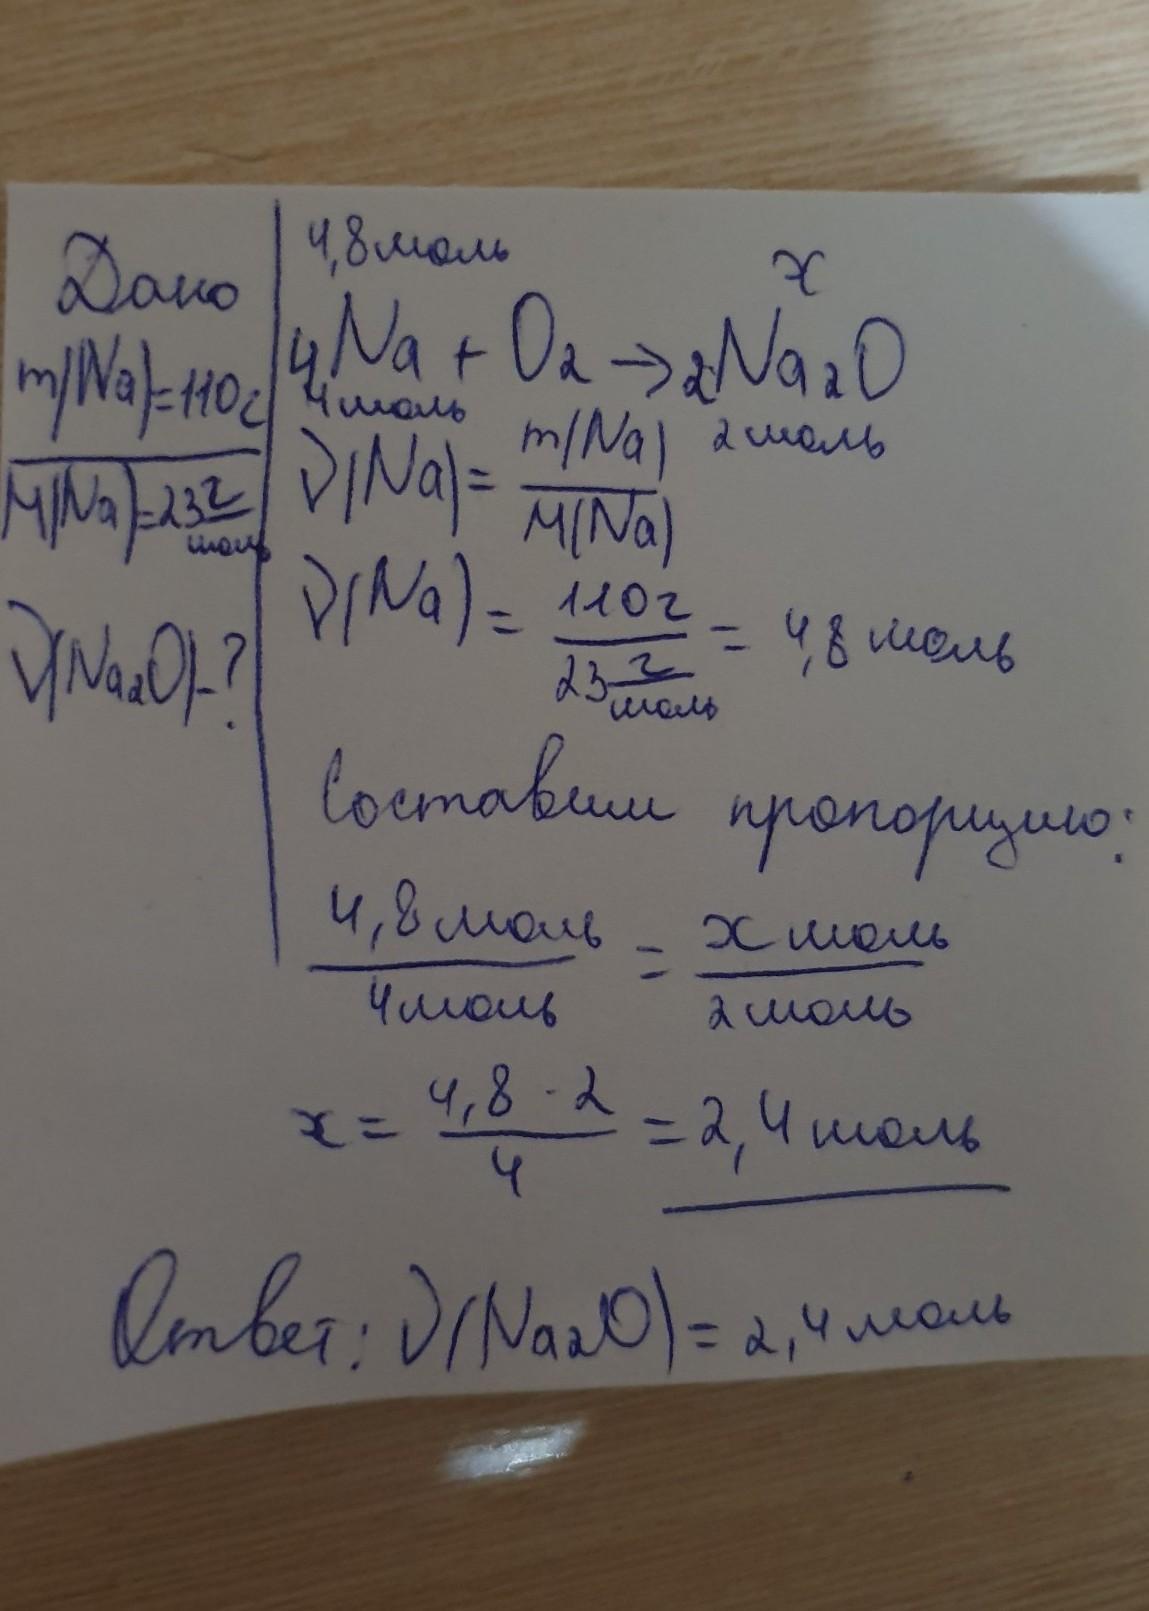 Дано
m(Na)=110г
M(Na)=23 г/моль
ν(Na₂O)-?
4,8моль x
4Na + O₂ → 2Na₂O
4моль 2моль
ν(Na) = m(Na)/M(Na)
ν(Na) = 110г/23 г/моль = 4,8 моль
Составим пропорцию:
4,8моль/4моль = x моль/2моль
x = 4,8 · 2/4 = 2,4 моль
Ответ: ν(Na₂O) = 2,4 моль